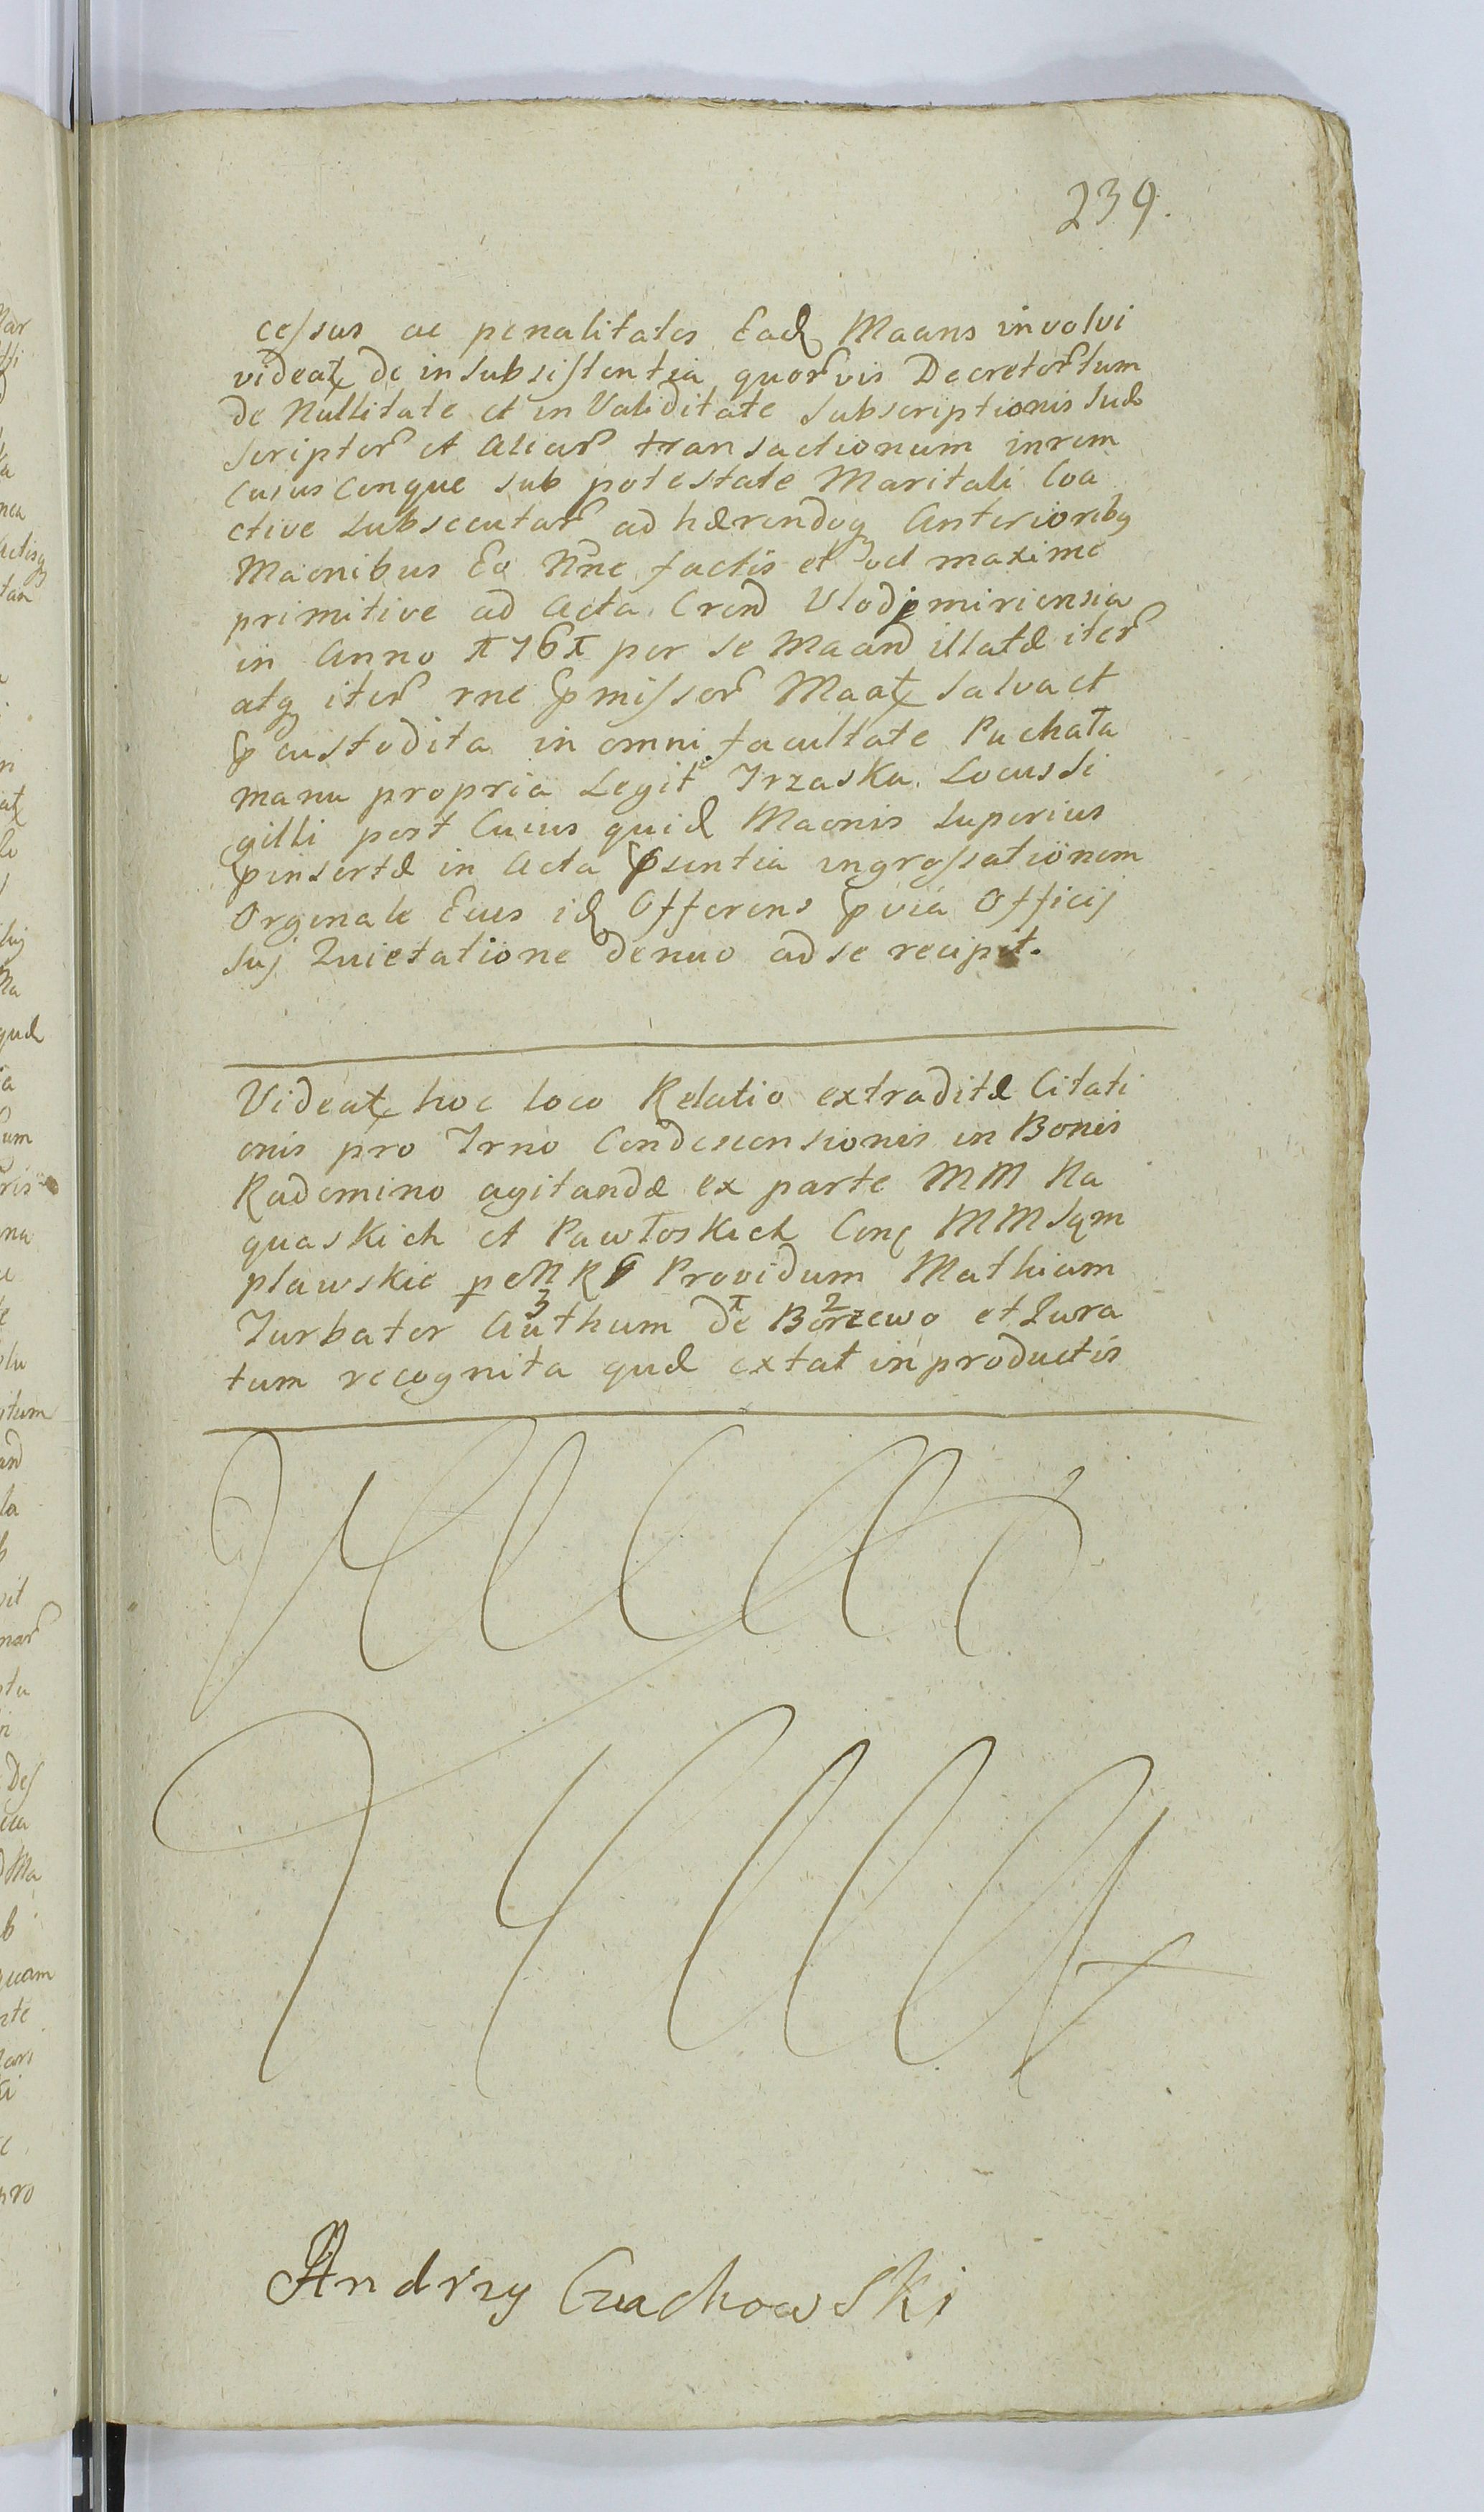 239.
cessus ac penalitates Ead Maans involvi
videat de in subsistentia quorvis Decretor tum
de Nullitate et in Validitate subscriptionis sub
scriptor et aliar transactionum in rem
Cuius Cunque sub potestate Maritali Coa
ctive subsecutar ad hærendoq Anterioribq
Maonibus Eo Nne factis et vel maxime
primitive ad Acta Crend Vlodzimiriensia
in Anno 1761 per se Maand illatæ iter
atq iter rne pmissor Maat salva et
p custodita in omni facultate Puchała
manu propria Legit Trzaska Locus Si
gilli post Cuius quid Maonis superius
pinsertæ in Acta psentia ingrossationem
Orginale Eius id Offerens pvia Officij
suj Quietatione denuo ad se recipit.
Videat hoc loco Relatio extraditæ Citati
onis pro Trno Condescensionis in Bonis
Radomino agitandæ ex parte MM Na
quaskich et Pawłoskich Conc MM
plawskie Providum Mathiam
Turbator Authum de Borzewo et Jura
3 1 2
tum recognita quæ extat in productis
Andrzy Czachowski